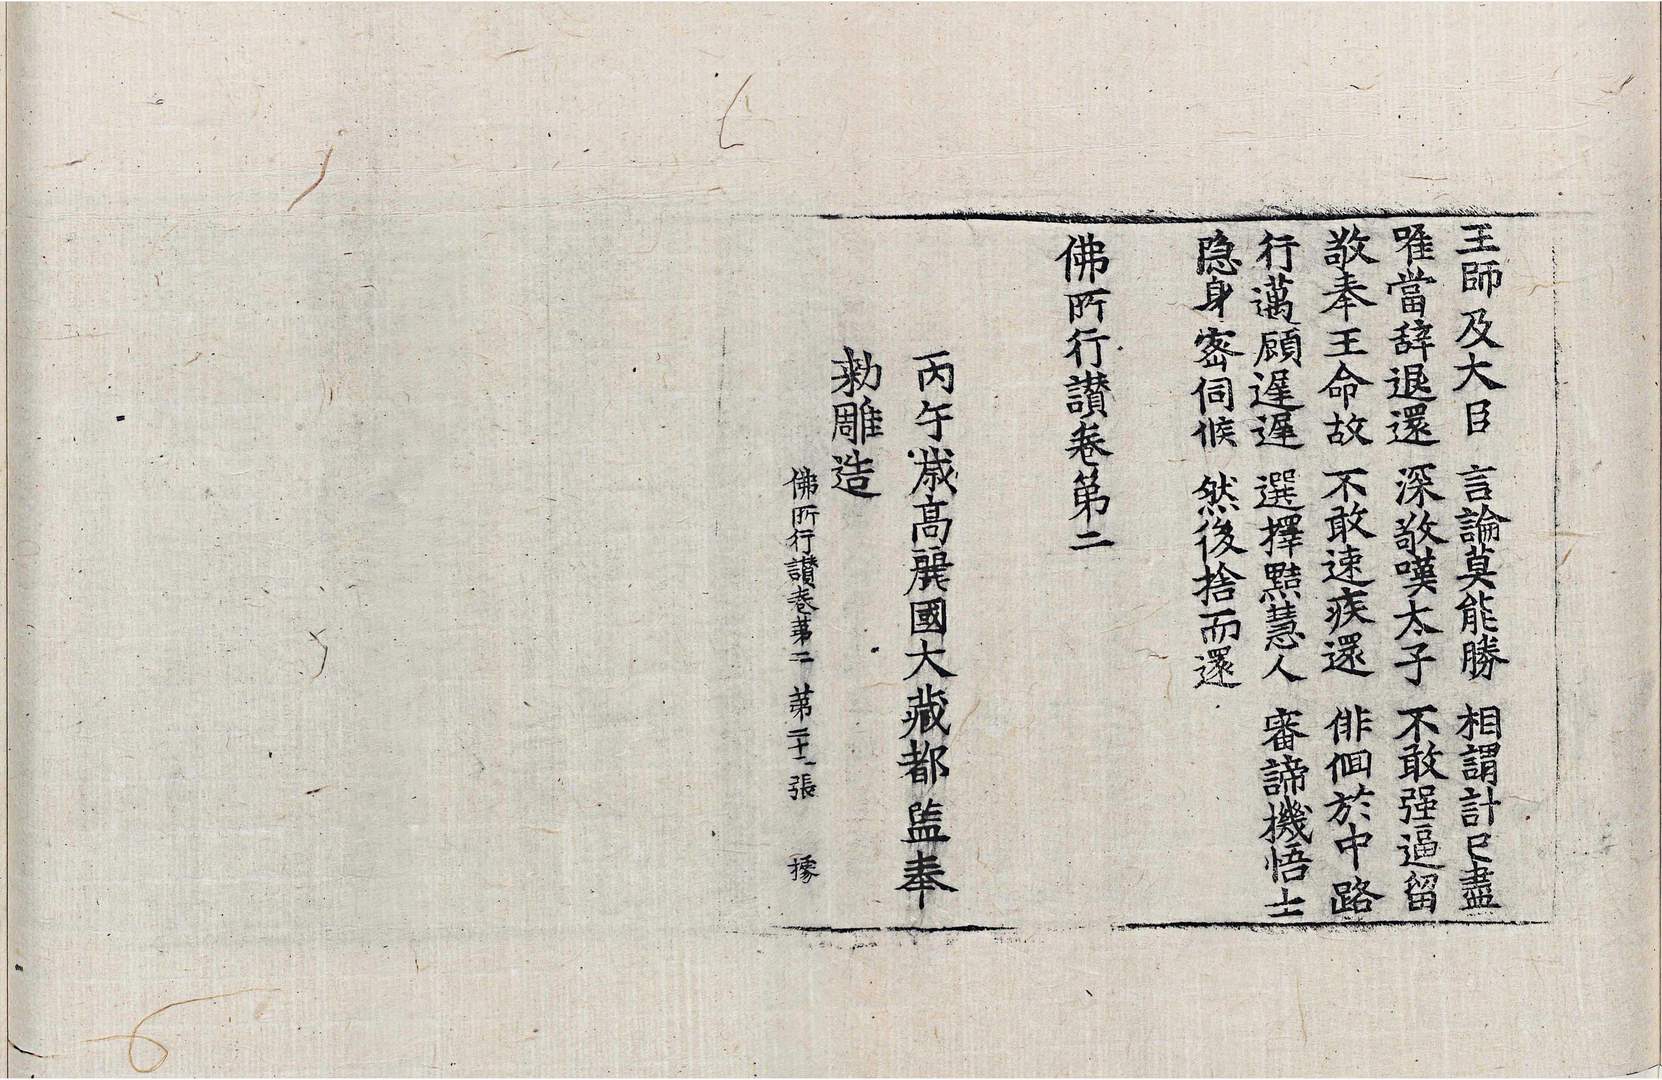 王師及大臣 言論莫能勝 相謂計已盡
唯當辞退還 深敬嘆太子 不敢强逼留
敬奉王命故 不敢速疾還 俳佪於中路
行邁顧遲遲 選擇黠慧人 審諦機悟士
隐身密伺候 然後捨而還
佛所行讃卷第二
丙午歲高麗國大藏都監奉
勅雕造
佛所行讃卷第二 第二十二張 據